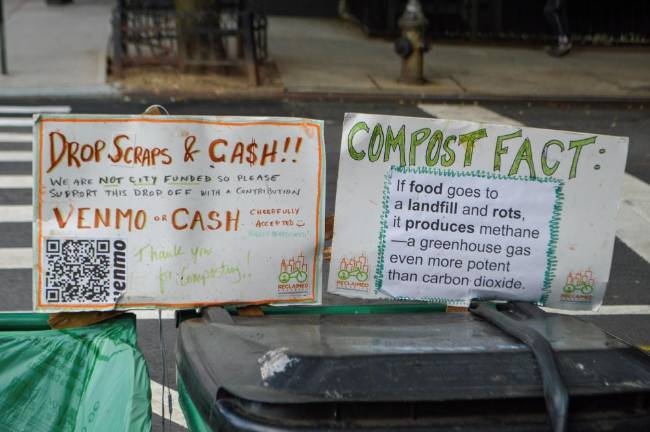 DROP SCRAPS & CA$H!!
WE ARE NOT CITY FUNDED SO PLEASE
SUPPORT THIS DROP OFF WITH A CONTRIBUTION
VENMO OR CASH CHEERFULLY
ACCEPTED
venmo
Thank you
for Composting!!
RECLAIMED
COMPOST FACT:
If food goes to
a landfill and rots,
it produces methane
—a greenhouse gas
even more potent
than carbon dioxide.
RECLAIMED
RECLAIMED